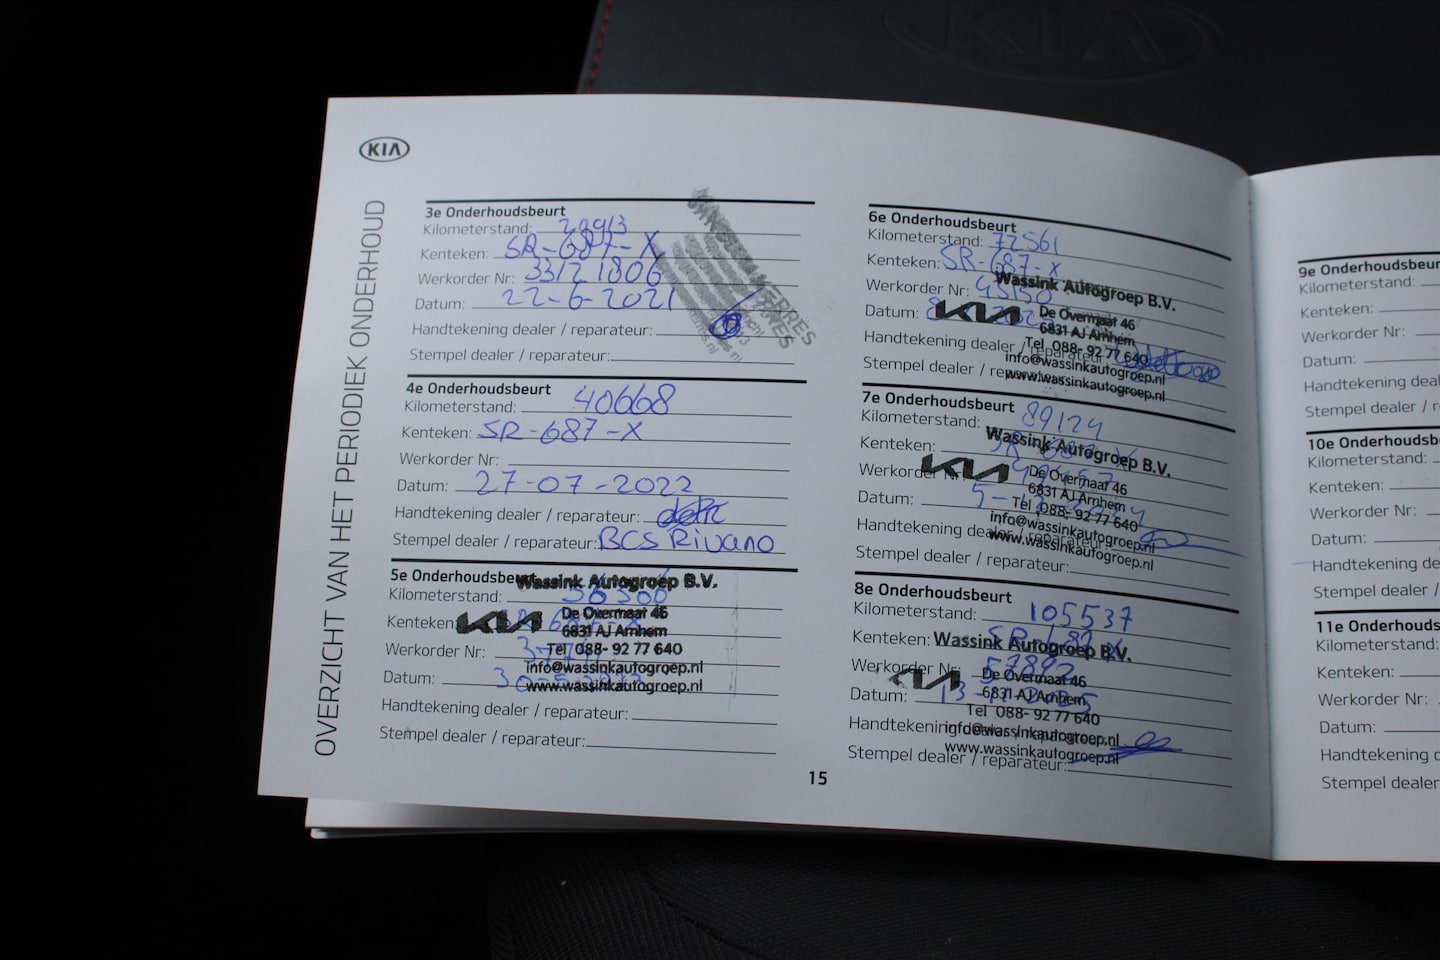 KIA
KIA
OVERZICHT VAN HET PERIODIEK ONDERHOUD
3e Onderhoudsbeurt
Kilometerstand:
Kenteken: SR-687-X
Werkorder Nr: 33121806
Datum: 22-6-2021
Handtekening dealer / reparateur:
Stempel dealer / reparateur:
4e Onderhoudsbeurt
Kilometerstand: 40668
Kenteken: SR-687-X
Werkorder Nr:
Datum: 27-07-2022
Handtekening dealer / reparateur:
Stempel dealer / reparateur: BCS Rivano
5e Onderhoudsbeurt
Wassink Autogroep B.V.
Kilometerstand:
De Overmaat 46
Kenteken: KIA
6831 AJ Arnhem
Werkorder Nr:
Tel 088- 92 77 640
info@wassinkautogroep.nl
Datum:
www.wassinkautogroep.nl
Handtekening dealer / reparateur:
Stempel dealer / reparateur:
15
6e Onderhoudsbeurt
Kilometerstand: 72561
Kenteken: SR-687-X
Wassink Autogroep B.V.
Werkorder Nr: 45150
De Overmaat 46
Datum: KIA
6831 AJ Arnhem
Handtekening dealer / reparateur:
Tel 088- 92 77 640
info@wassinkautogroep.nl
Stempel dealer / reparateur:
www.wassinkautogroep.nl
7e Onderhoudsbeurt
Kilometerstand: 89124
Kenteken: SR-687-X
Wassink Autogroep B.V.
Werkorder Nr: KIA
De Overmaat 46
6831 AJ Arnhem
Datum:
Tel 088- 92 77 640
info@wassinkautogroep.nl
Handtekening dealer / reparateur:
www.wassinkautogroep.nl
Stempel dealer / reparateur:
8e Onderhoudsbeurt
Kilometerstand: 105537
Kenteken: SR-687-X
Wassink Autogroep B.V.
Werkorder Nr: 57892
De Overmaat 46
KIA
6831 AJ Arnhem
Datum:
Tel 088- 92 77 640
Handtekening dealer / reparateur:
info@wassinkautogroep.nl
www.wassinkautogroep.nl
Stempel dealer / reparateur:
9e Onderhoudsbeur
Kilometerstand:
Kenteken:
Werkorder Nr:
Datum:
Handtekening deal
Stempel dealer / r
10e Onderhoudsb
Kilometerstand:
Kenteken:
Werkorder Nr:
Datum:
Handtekening de
Stempel dealer /
11e Onderhouds
Kilometerstand:
Kenteken:
Werkorder Nr:
Datum:
Handtekening d
Stempel dealer